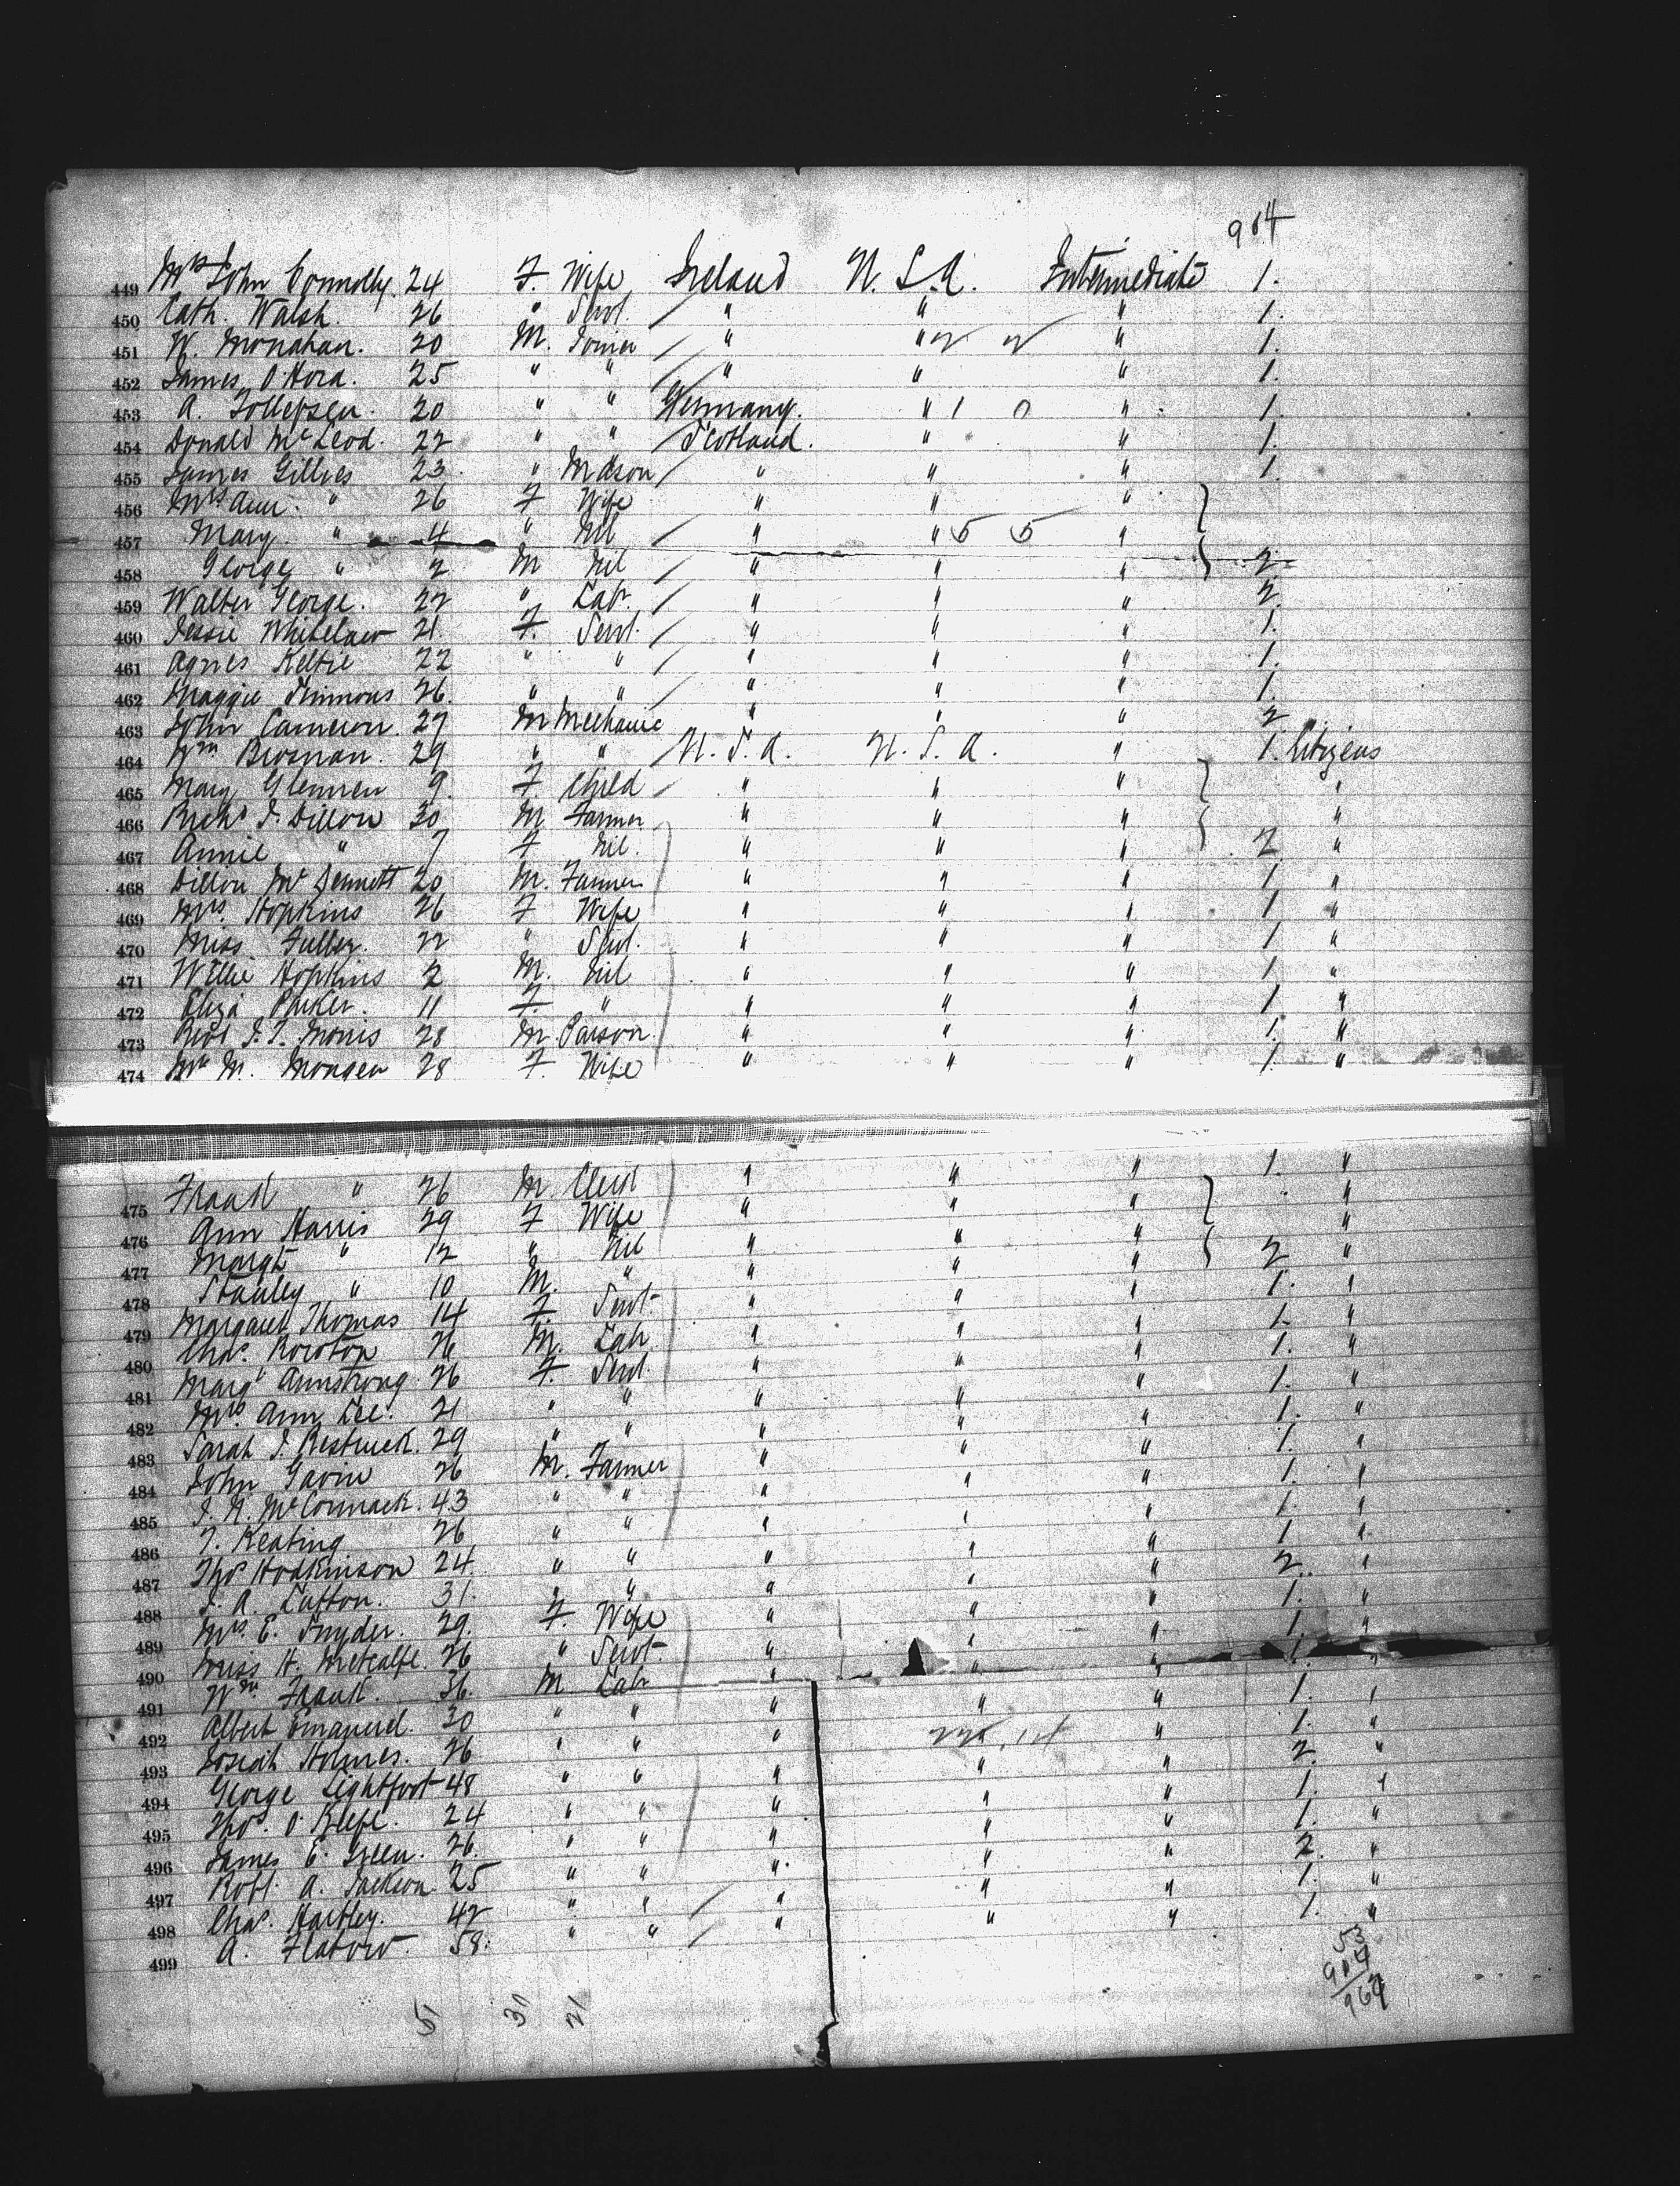 904
449 Mrs John Connolly. 24 F. Wife Ireland U. S. A. Intermediate 1.
450 Cath. Walsh. 26 " Servt. " " " 1.
451 W. Monahan. 20 M. Joiner " " " 1.
452 James O'Hora. 25 " " " " " 1.
453 A. Tollefsen. 20 " " Germany. " 1 0 " 1.
454 Donald McLeod. 22 " " Scotland. " " 1.
455 James Gillies 23. " Mason " " " 1.
456 Mrs Ann. " 26 F Wife " " "
457 Mary. " 4 " Nil " " 5 5 "
458 George " 2 M Nil " " " 2.
459 Walter George. 22 " Labr. " " " 2.
460 Jessie Whitelaw 21. F. Servt. " " " 1.
461 Agnes Keltie 22 " " " " " 1.
462 Maggie Simmons 26. " " " " " 1.
463 John Cameron. 27 M Mechanic " " " 2
464 Wm Brosnan. 29 " " U. S. A. U. S. A. " 1. Citizens
465 Mary Glennen 9. F. Child " " " "
466 Richd J. Dillon 30 M. Farmer " " " "
467 Annie " 7 F Nil. " " " 2 "
468 Dillon McDennott 20 M. Farmer " " " 1 "
469 Mrs. Hopkins 26 F Wife " " " 1 "
470 Miss. 22 " Servt. " " " 1 "
471 Willie Hopkins 2 M. Nil " " " 1 "
472 Eliza Parker. 11 F. " " " " 1 "
473 J. T. Morris 28 M. Parson " " " 1. "
474 M. Mongen 28 F. Wife " " " 1. "
475 Frank " 26 M. Clerk " " " 1. "
476 Ann Harris 29 F Wife " " " "
477 Margt " 12 " Nil " " " "
478 Stanley " 10 M. " " " " 2 "
479 Margaret Thomas 14 F. Servt " " " 1. "
480 Chas. 26 M. Labr " " " 1. "
481 Margt Armstrong 26 F. Servt. " " " 1. "
482 Mrs. Ann Lee. 21 " " " " " 1. "
483 Sarah J. 29 " " " " " 1. "
484 John Gavin 26 M. Farmer " " " 1. "
485 J. N. McCormack. 43 " " " " " 1. "
486 T. Keating 26 " " " " " 1. "
487 Thos Hodkinson 24 " " " " " 1 "
488 J. A. Lutton. 31. " " " " " 2. "
489 Mrs. E. Snyder. 29. F. Wife " " " 1. "
490 Miss H. Metcalfe. 26 " Servt. " " " 1. "
491 Wm. Frank. 36. M Labr " " " 1. "
492 Albert Emanuel. 30 " " " " " 1. "
493 Josiah Holmes. 26 " " " " 1. "
494 George Lightfoot 48 " " " " " 2. "
495 Thos. O'Keefe. 24 " " " " " 1. "
496 James E. Green. 26. " " " " " 1. "
497 Robt. A. Jackson 25 " " " " " 2. "
498 Chas. Hartley. 42 " " " " " 1. "
499 A. 58. " " " " " 1. "
53
904
964
51 31 21